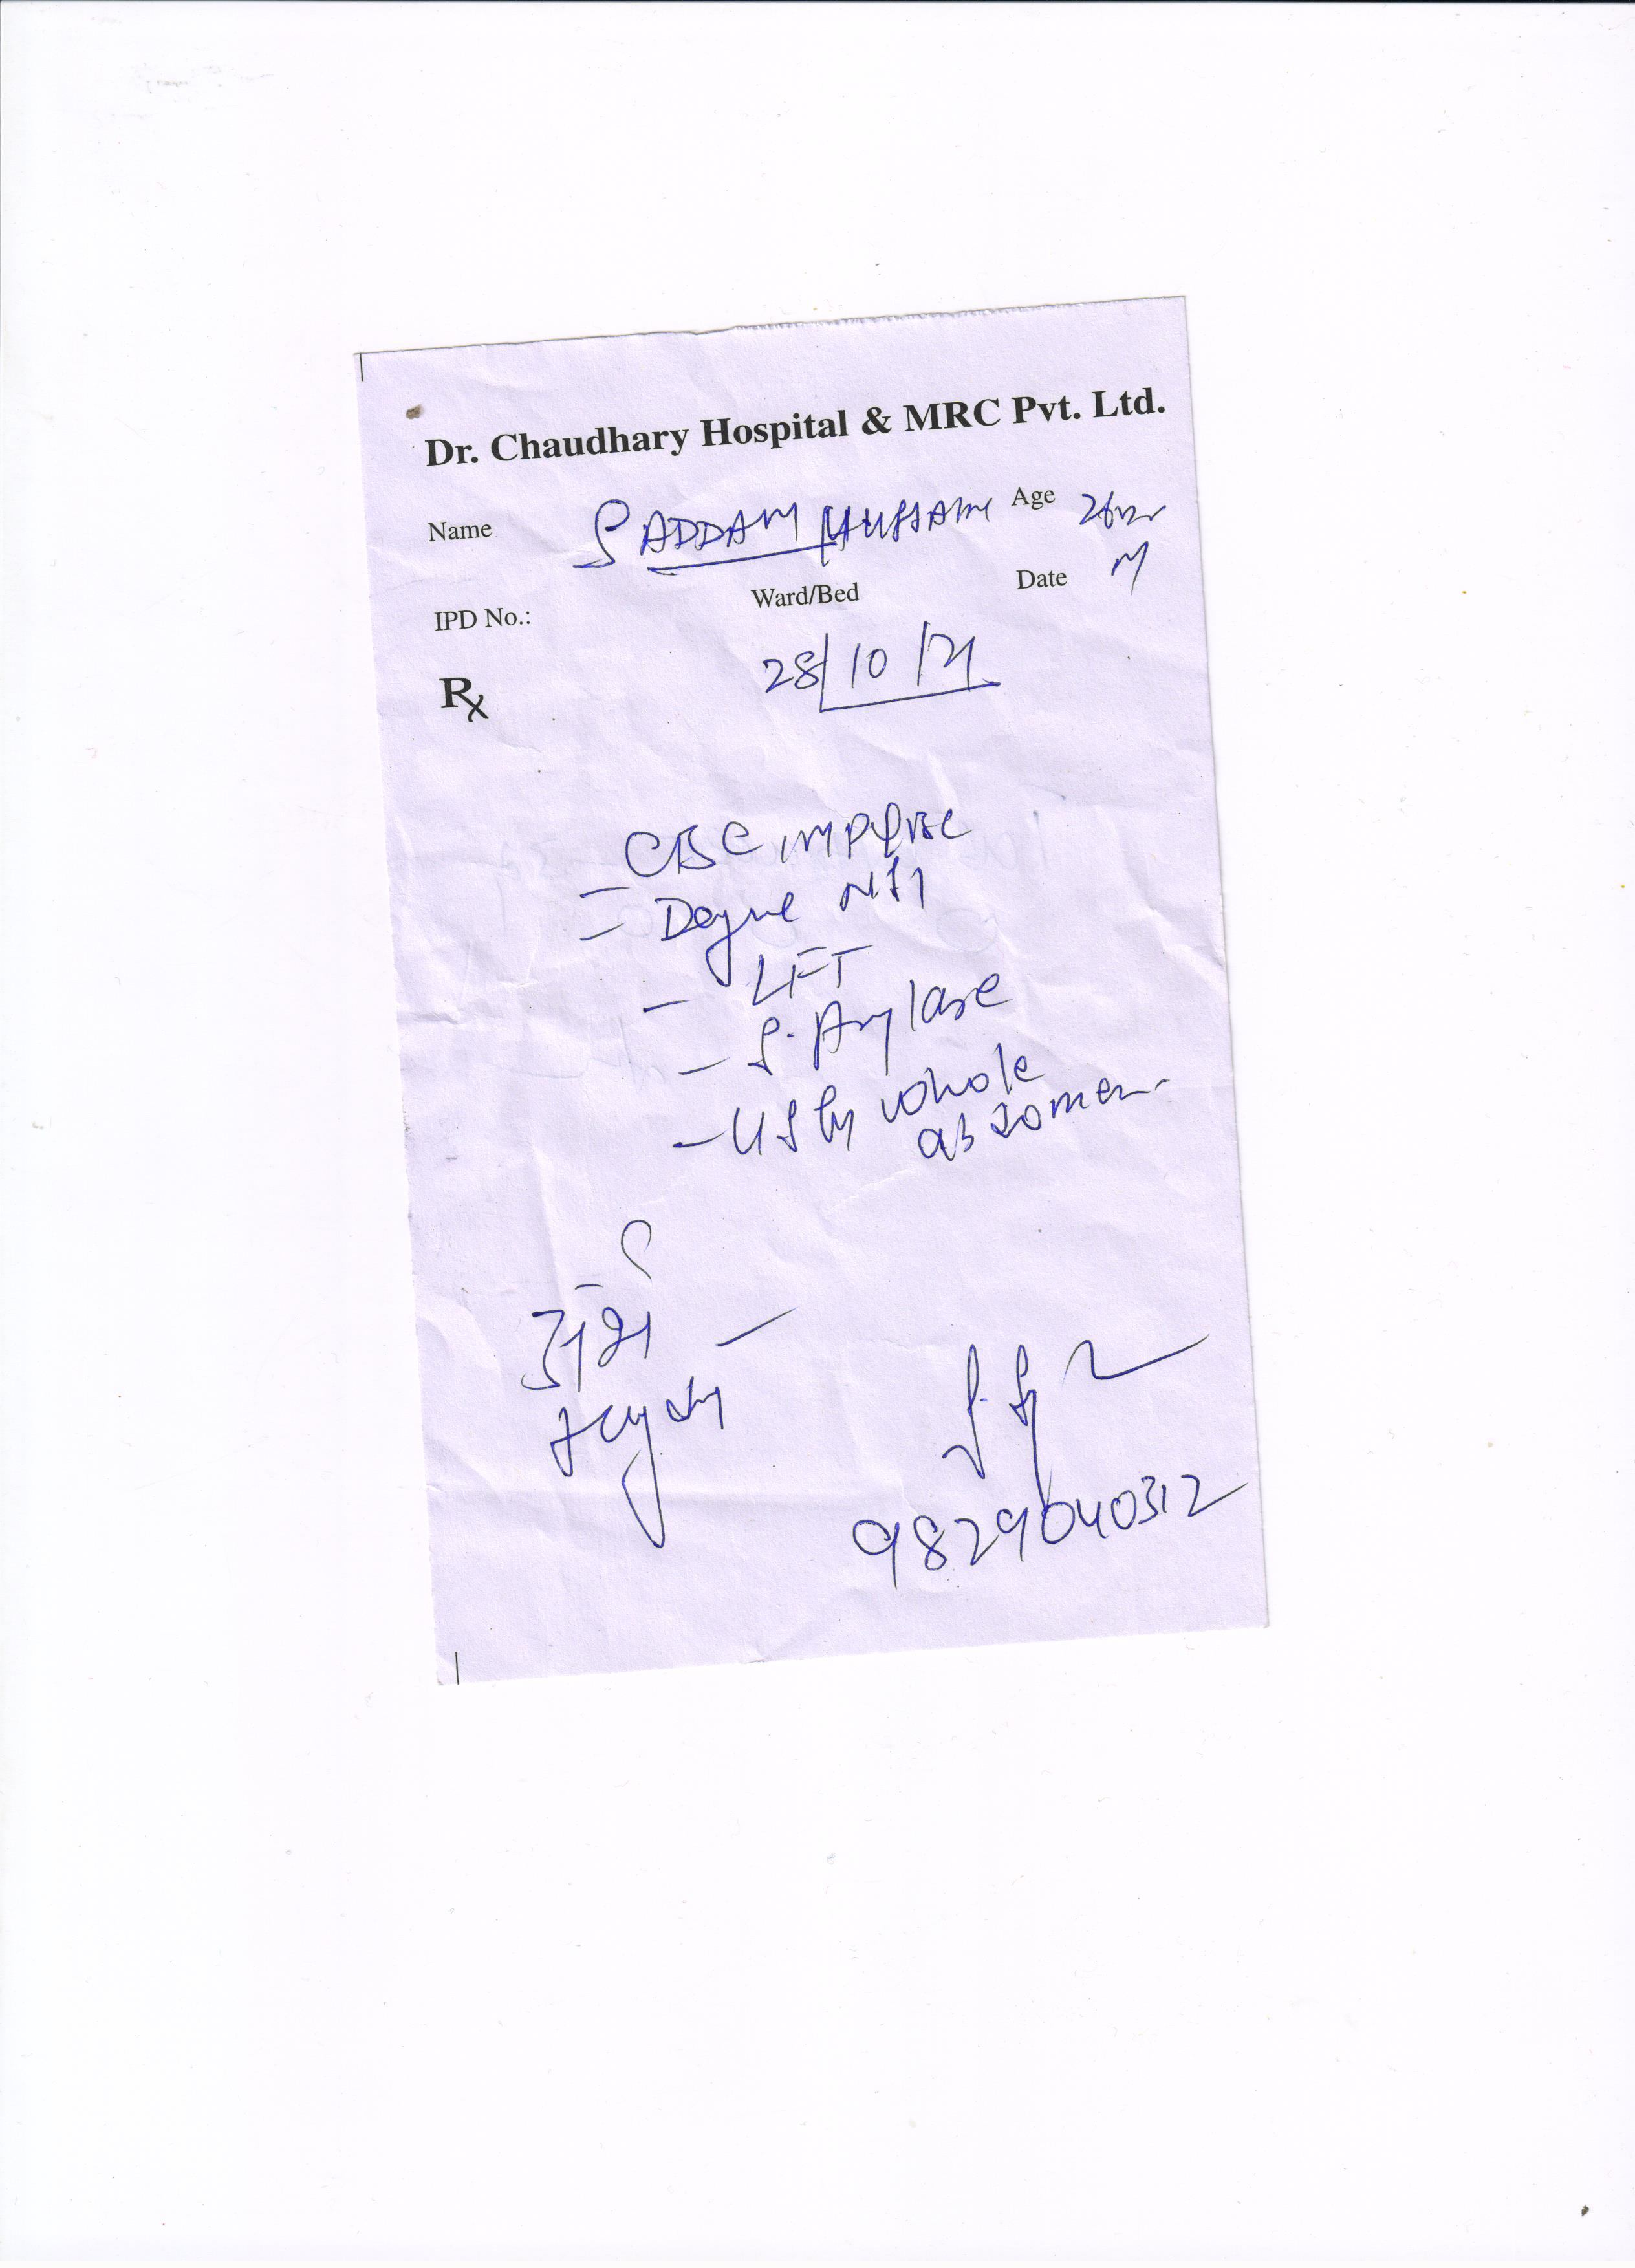 Dr. Chaudhary Hospital & MRC Pvt. Ltd.
Name SADDAM HUSSAIN Age 26yr
IPD No.: Ward/Bed Date M
Rx 28/10/21
- CBC MP PBC
- Dengue NS1
- LFT
- S. Amylase
- USG whole
abdomen
9829040312